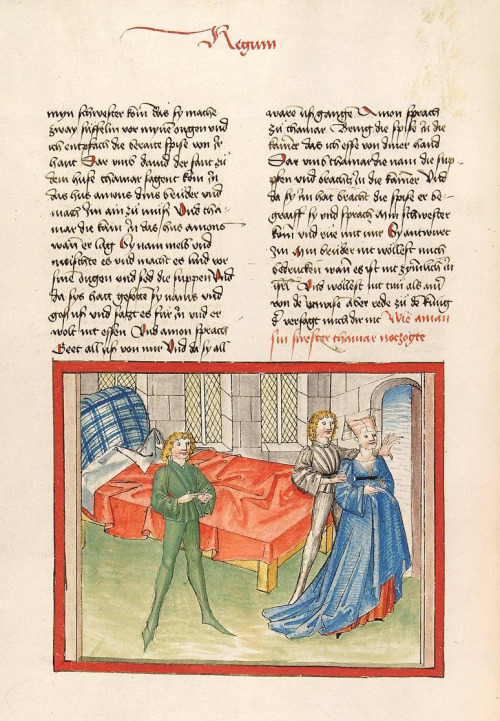 Regum
myn schwester kōm das sy mache
zway süfflin vor mynē ougen und
ich entpfach die berait spise von jr
hant Dar umb david der sant zů
dem huse thamar sagent kōm zů
das hus amons dins brůder und
mach jm ain zů můsß Und tha-
mar die kam zů das hus amons
wan er lag Sy nam melb und
mischte es und macht es lind vor
sine ougen und sod die suppen Und
da sys hatt gesottē sy nams und
goss uß und satzt es für jn und er
wolt nit essen Und amon sprach
Geet all uß von mir Und da sy all
ware uß gange Amon sprach
zů thamar Bring die spise jn die
kamer das ich esse von diner hand
Dar umb thamar die nam die sup-
pen und bracht jn die kamer Und
da sy jm hat bracht die spise er be-
graiff sy und sprach min schwester
kōm und rüe mit mir Sy antwurt
jm Min brůder nit wöllest mich
bedrucken wan es ist nit zymlich jn
jsrl Und wöllest nit tun als ain
von de unwise aber rede zů dē küng
er versagt mich dir nit Wie aman
sin swester thamar notzogte